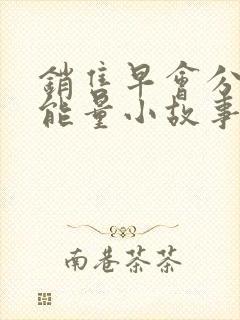 銷售早會分
能量小故事
南巷茶茶